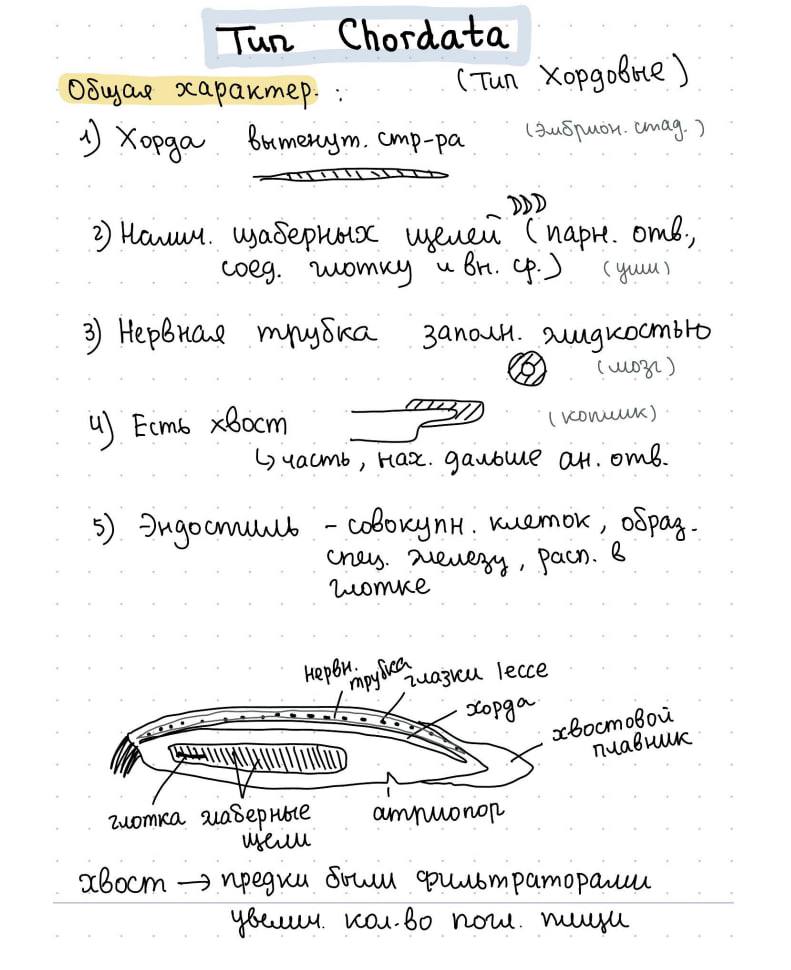 Тип Chordata
Общая характер. :
(Тип Хордовые)
1) Хорда вытянут. стр-ра (эмбрион. стад.)
2) Налич. жаберных щелей (парн. отв.,
соед. глотку и вн. ср.) (уши)
3) Нервная трубка заполн. жидкостью
(мозг)
4) Есть хвост (копчик)
↳ часть, нах. дальше ан. отв.
5) Эндостиль - совокупн. клеток, образ.
спец. железу, расп. в
глотке
нервн. трубка
глазки Гессе
хорда
хвостовой
плавник
глотка
жаберные
щели
атриопор
хвост → предки были фильтраторами
увелич. кол-во погл. пищи